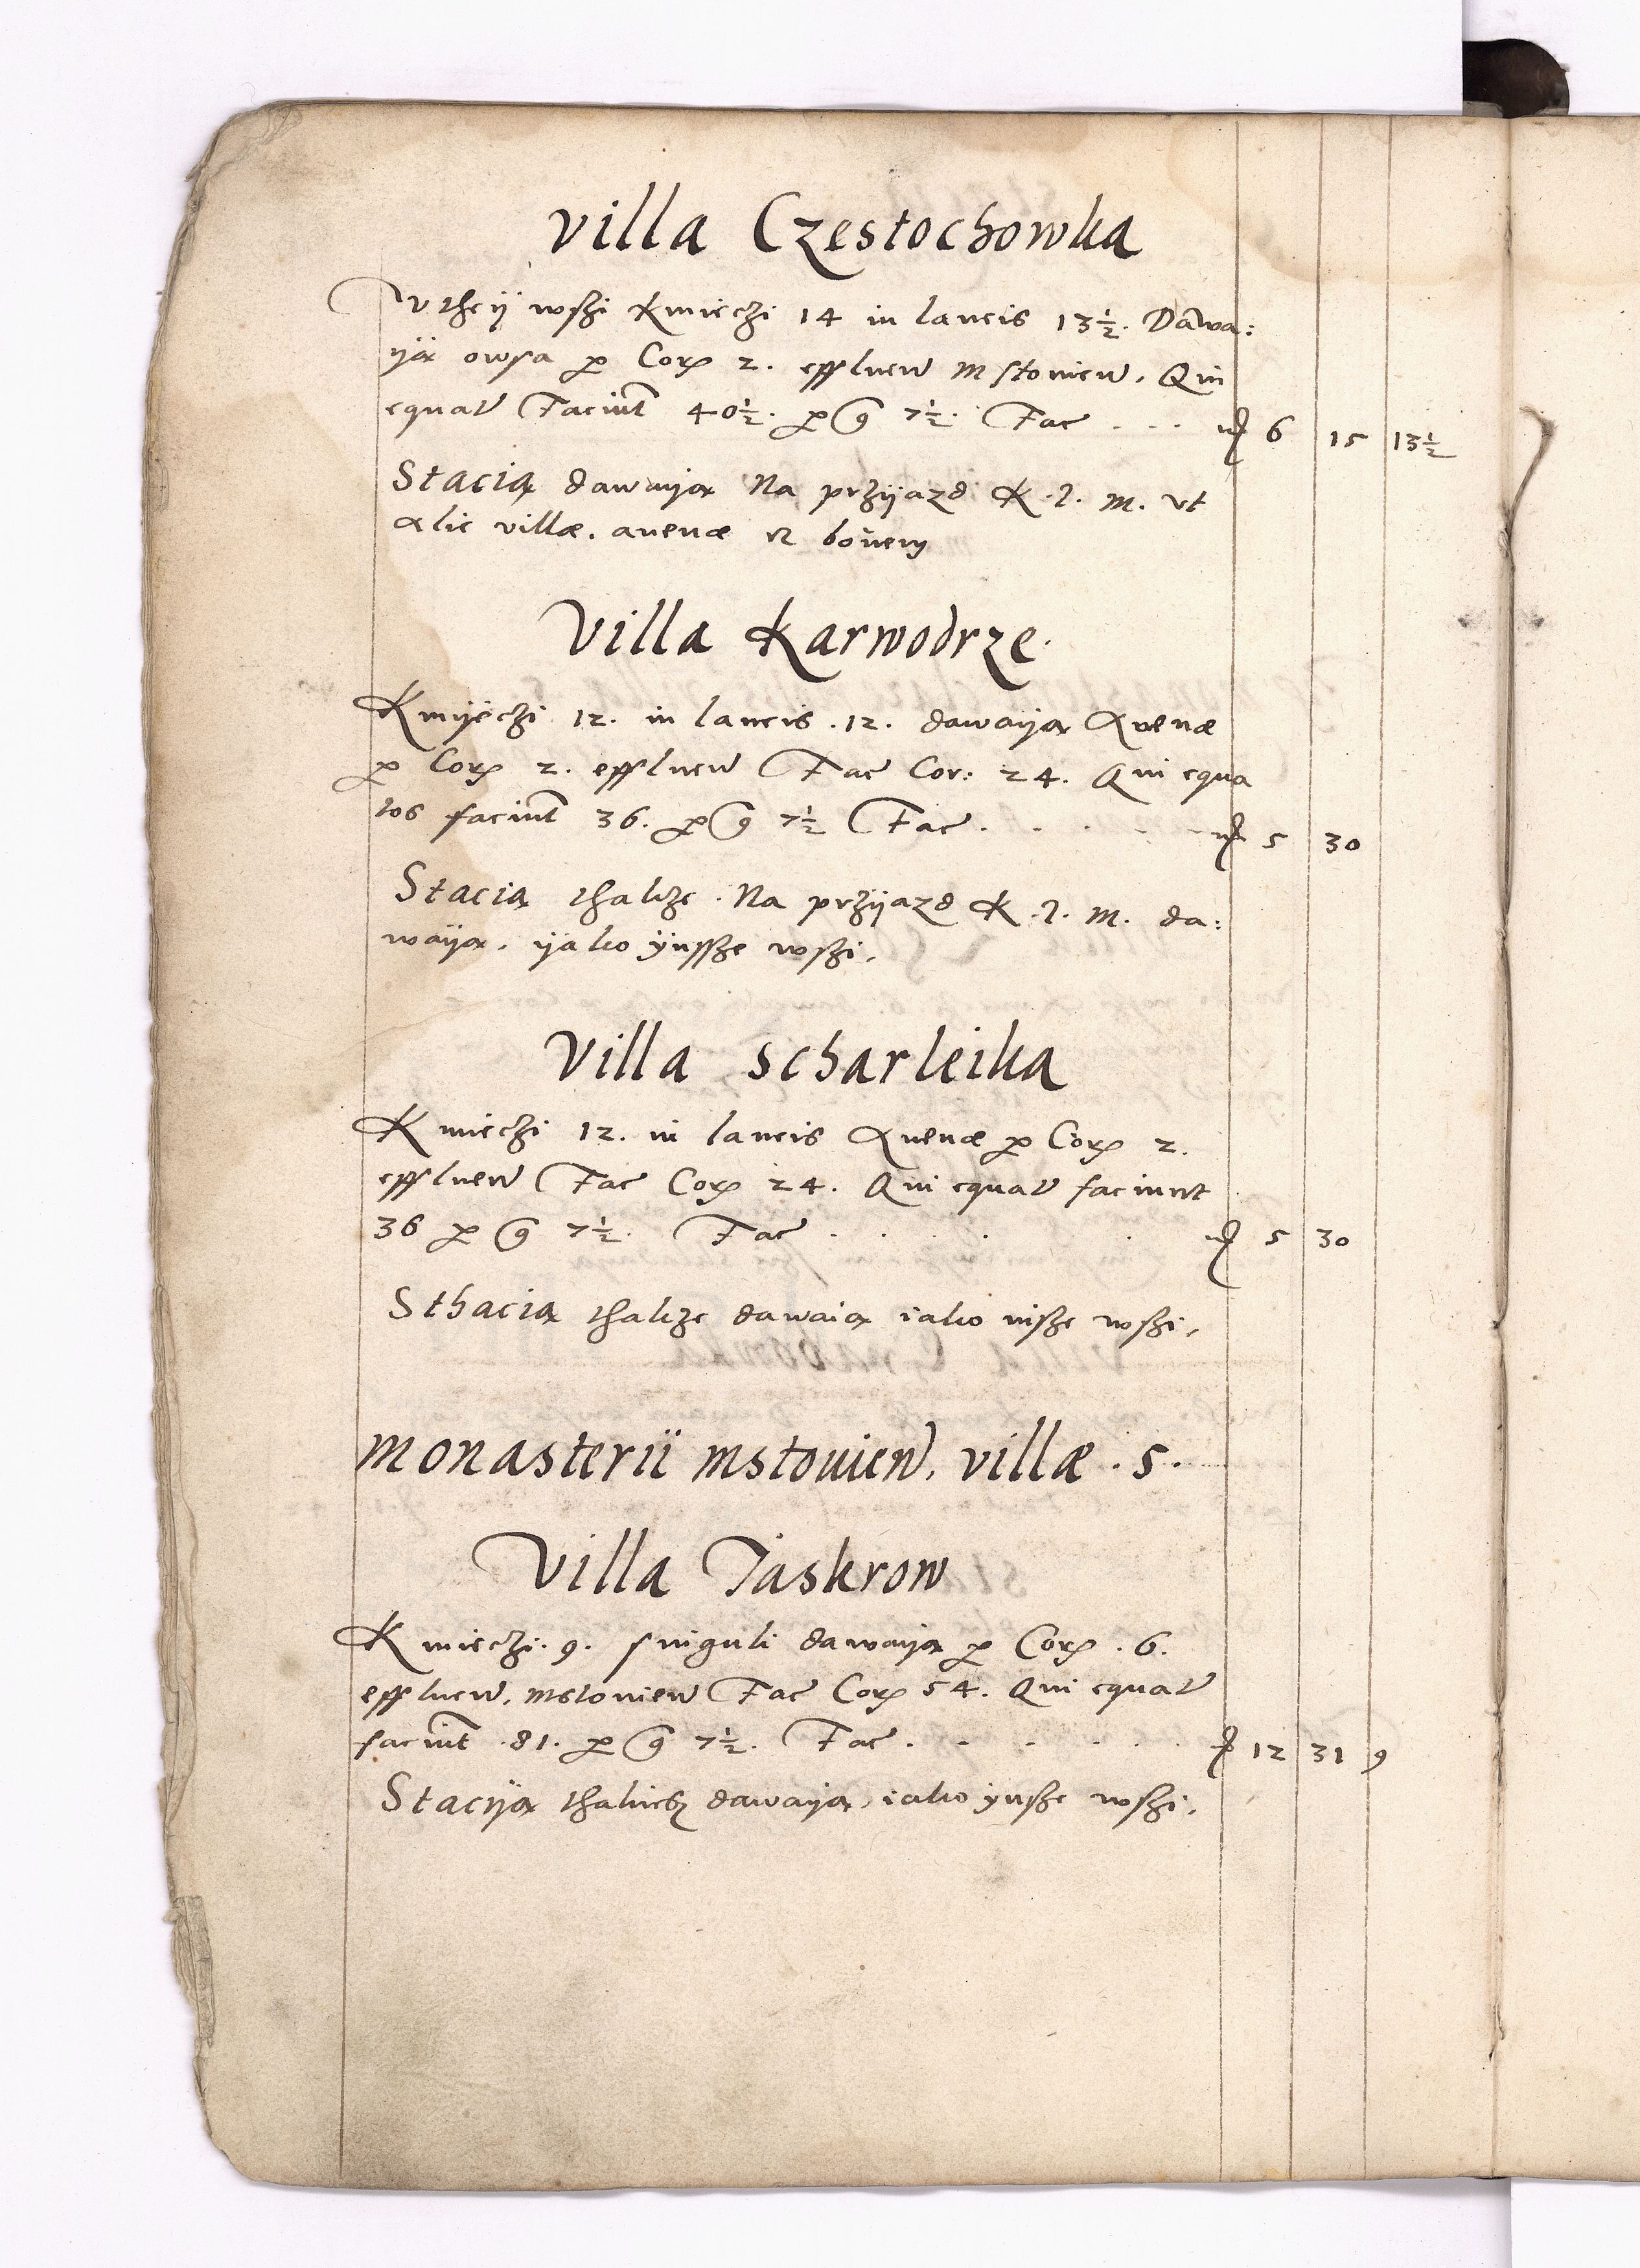 Villa Czestochowka
W they wszi Kmieczi 14 in laneis 13½. Dawa:
ija owsa p Cor 2. effluen Mstouien. Qui
equat Faciunt 40½. p g 7½. Fac . . . 6 15 13½
Stacią dawaiją Na prziiazd K. J. M. vt
aliæ villæ. auenæ et bouem
Villa Karwodrze.
Kmijeczi 12. in laneis .12. dawaiją Auenæ
p Cor 2. effluen Fac Cor: 24. Qui equa
tos faciunt 36. p g 7½ Fac . . . . 5 30
Stacią thakze. Na prziiazd K. J. M. da:
waiją. ijako ÿnssze wszi.
Villa Scharleika
Kmieczi 12. in laneis Auenæ p Cor 2.
effluen Fac Cor 24. Qui equat faciunt
36 p g 7½. Fac . . . . 5 30
Sthacią thakze dawaią iako insze wszi.
Monasterii Mstouien. villæ . 5.
Villa Jaskrow
Kmieczi. 9. singuli dawaiją p Cor . 6.
effluen. Mstouien Fac Cor 54. Qui equat
faciunt .81. p g 7½. Fac . . . . . 12 31 9
Staciją thakiesz dawaiją. iako ÿnsze wszi.